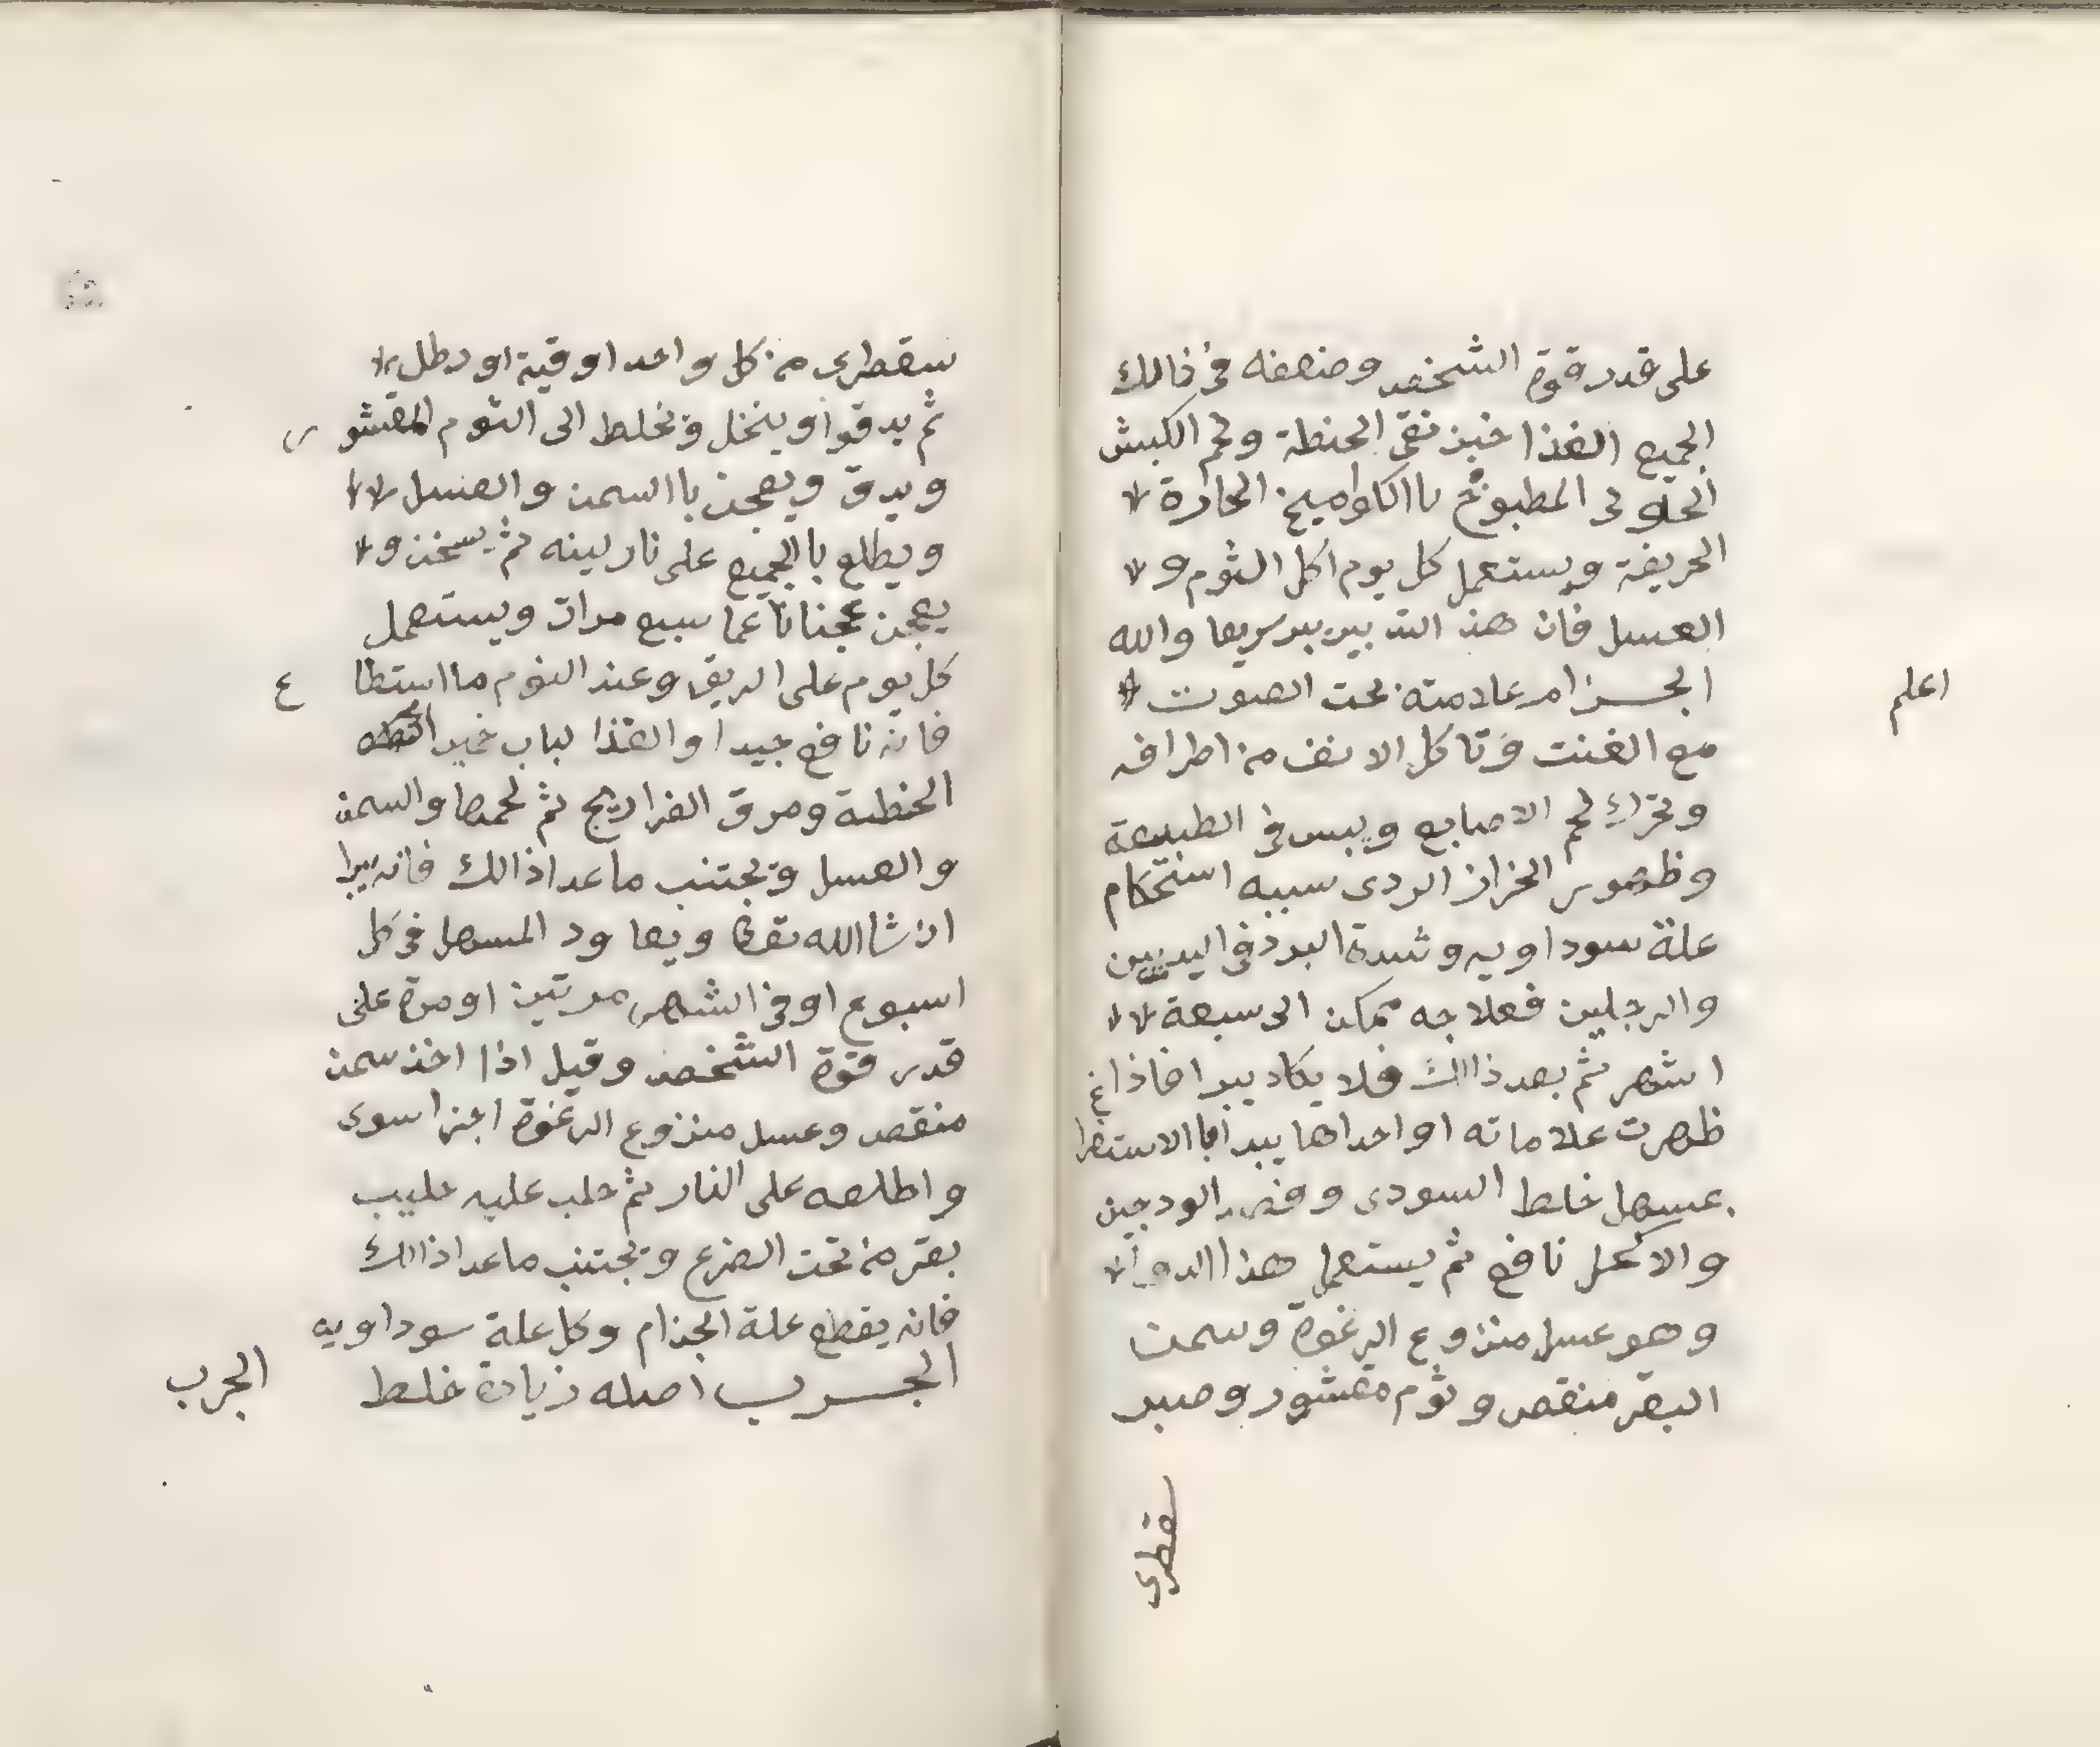 على قدر قوة الشخص وضعفه في ذالك
الجميع الغذا خبز نقي الحنطة ولحم الكبش
الحولى المطبوخ باالكواميخ الحارة
الحريفة ويستعمل كل يوم اكل الثوم و
العسل فان هذ التدبير يبر سريعا والله
اعلم
الجزام علامته بحت الصوت
مع الغنت وتاكل الانف من اطرافه
وتحرك لحم الاصابع ويبس في الطبيعة
وظهور الحزاز الردى سببه استحكام
علة سوداويه وشدة البرد في اليديين
والرجلين فعلاجه ممكن الى سبعة
اشهر ثم بعد ذاالك فلا يكاد يبرا فاذا
ظهرت علاماته او احداها يبدا باالاستفراغ
بمسهل خلط السودى وفصد الودجين
والاكحل نافع ثم يستعمل هذا الدوا
وهو عسل منزوع الرغوة وسمن
البقر منقص وثوم مقشور وصبر
سقطرى
سقطرى من كل واحد اوقية او رطل
ثم يدقوا وينخل وتخلط الى الثوم المقشور
ويدق ويعجن باالسمن والعسل
ويطلع باالجميع على نار لينه ثم يسخن و
يعجن عجنا ناعما سبع مرات ويستعمل
كل يوم على الريق وعند النوم مااستطاع
فانه نافع جيدا والغذا لباب خبز
الحنطة ومرق الفراريج ثم لحمها والسمن
والعسل وتجتنب ماعدا ذالك فانه يبرا
ان شاالله تعالى ويعاود المسهل في كل
اسبوع او في الشهر مرتين او مرة على
قدر قوة الشخص وقيل اذا اخذ سمن
منقص وعسل منزوع الرغوة اجزا سوى
واطلعه على النار ثم حلب عليه حليب
بقر من تحت الضرع وتجتنب ماعدا ذاالك
فانه يقطع علة الجذام وكل علة سوداويه
الجرب اصله زيادة خلط
الجرب